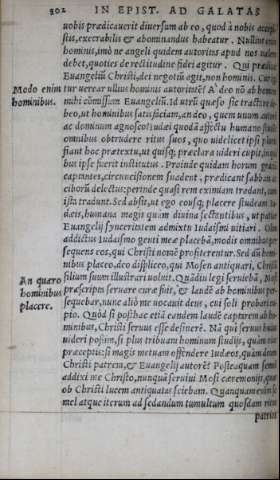 302 IN EPIST. AD GALATAS
uobis prædicauerit diuersum ab eo, quod à nobis accepi-
stis, execrabilis & abominandus habeatur. Nullius enim
hominis, imò ne angeli quidem autoritas apud nos ualere
debet, quoties de rectitudine fidei agitur. Qui
Euangeliũ Christi, dei negotiũ agit, non hominis.
Modo enim
hominibus.
tur uerear ullius hominis autoritatẽ? A' deo nõ ab
mihi cõmissam Euangeliũ. Id utrũ quæso sic
beo, ut hominibus satisfaciam, an deo, quem unum autorem
ac dominum agnosco? Iudæi quodã affectu humano
omnibus obtrudere ritus suos, quo uidelicet ipsi
fiant hoc prætextu, ut quisq; præclara uideri cupit, in
bus ipse fuerit institutus. Proinde quidam horum
captantes, circuncisionem suadent, prædicant sabbata
ciborũ delectus: perinde quasi rem eximiam tradant,
isti tradunt. Sed absit, ut ego eousq; placere studeam
dæis, humana magis quàm diuina sectantibus, ut patiar
Euangelij synceritatem admixtu Iudaismi uitiari. Olim
addictus Iudaismo genti meæ placebã, modis omnibus per
sequens eos, qui Christi nomẽ profiterentur. Sed dũ homi
nibus placeo, deo displiceo, qui Mosen antiquari, Christũ
An quæro
hominibus
placere.
filium suum illustrari uoluit. Quãdiu legi seruiebã,
præscripta seruare curæ fuit, & laudẽ ab hominibus
sequebar, nunc aliò me uocauit deus, cui soli probari
pio. Quòd si posthac etiã eandem laudẽ captarem ab ho-
minibus, Christi seruus esse desinerẽ. Nã qui seruus
uideri possim, si plus tribuam hominum studijs, quàm eius
præceptis: si magis metuam offendere Iudæos, quàm deum
Christi patrem, & Euangelij autorẽ? Posteaquam semel
addixi me Christo, nunquã seruiui Mosi cæremonijs, quas
ob Christi lucem antiquatas sciebam. Quanquam enim se
mel atque iterum ad sedandum tumultum quosdam ritus
patrios